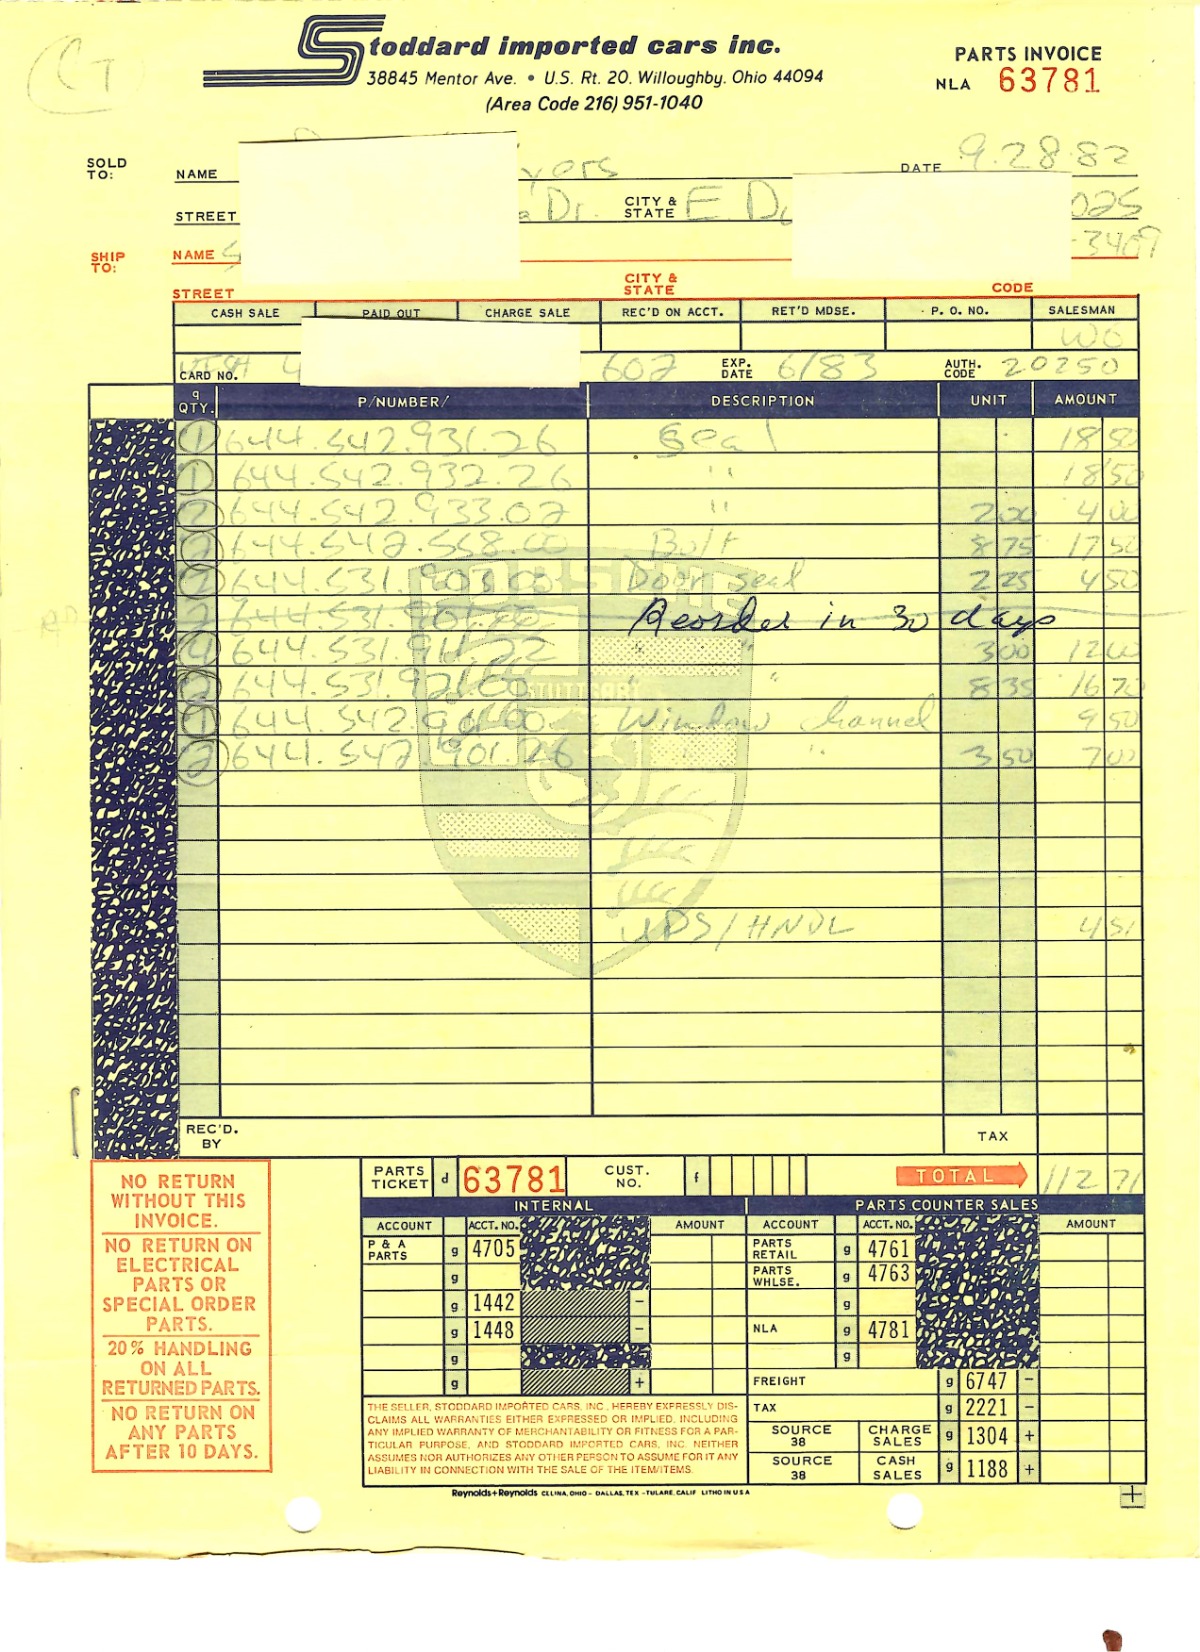 Stoddard imported cars inc.
38845 Mentor Ave. • U.S. Rt. 20. Willoughby. Ohio 44094
(Area Code 216) 951-1040
PARTS INVOICE
NLA 63781
CT
SOLD TO: NAME yors DATE 9.28.82
STREET Dr. CITY & STATE E. 025
SHIP TO: NAME -3409
STREET CITY & STATE CODE
CASH SALE PAID OUT CHARGE SALE REC'D ON ACCT. RET'D MDSE. P. O. NO. SALESMAN
CARD NO. 4 602 EXP. DATE 6/83 AUTH. CODE 20250
q QTY. P/NUMBER/ DESCRIPTION UNIT AMOUNT
1 644.542.931.26 Seal 18 50
1 644.542.932.26 " 18 50
2 644.542.933.02 " 2 00 4 00
2 644.542.558.00 Bolt 8 75 17 50
2 644.531.903.03 Door seal 2 25 4 50
2 644.531.901.00 Reorder in 30 days
4 644.531.911.22 " " 3 00 12 00
2 644.531.921.00 " " 8 35 16 70
1 644.542. Window channel 9 50
2 644.542.901.26 " " 3 50 7 00
PORSCHE
STUTTGART
UPS/HNDL 4 51
REC'D. BY TAX
PARTS TICKET d 63781 CUST. NO. f TOTAL 112 71
NO RETURN
WITHOUT THIS
INVOICE.
NO RETURN ON
ELECTRICAL
PARTS OR
SPECIAL ORDER
PARTS.
20% HANDLING
ON ALL
RETURNED PARTS.
NO RETURN ON
ANY PARTS
AFTER 10 DAYS.
INTERNAL PARTS COUNTER SALES
ACCOUNT ACCT. NO. AMOUNT ACCOUNT ACCT. NO. AMOUNT
P & A PARTS g 4705 PARTS RETAIL g 4761
g PARTS WHLSE. g 4763
g 1442 – g
g 1448 – NLA g 4781
g g
g + FREIGHT g 6747 –
TAX g 2221 –
SOURCE 38 CHARGE SALES g 1304 +
SOURCE 38 CASH SALES g 1188 +
THE SELLER, STODDARD IMPORTED CARS, INC., HEREBY EXPRESSLY DIS-
CLAIMS ALL WARRANTIES EITHER EXPRESSED OR IMPLIED, INCLUDING
ANY IMPLIED WARRANTY OF MERCHANTABILITY OR FITNESS FOR A PAR-
TICULAR PURPOSE, AND STODDARD IMPORTED CARS, INC. NEITHER
ASSUMES NOR AUTHORIZES ANY OTHER PERSON TO ASSUME FOR IT ANY
LIABILITY IN CONNECTION WITH THE SALE OF THE ITEM/ITEMS.
Reynolds+Reynolds CELINA, OHIO – DALLAS, TEX – TULARE, CALIF LITHO IN U S A